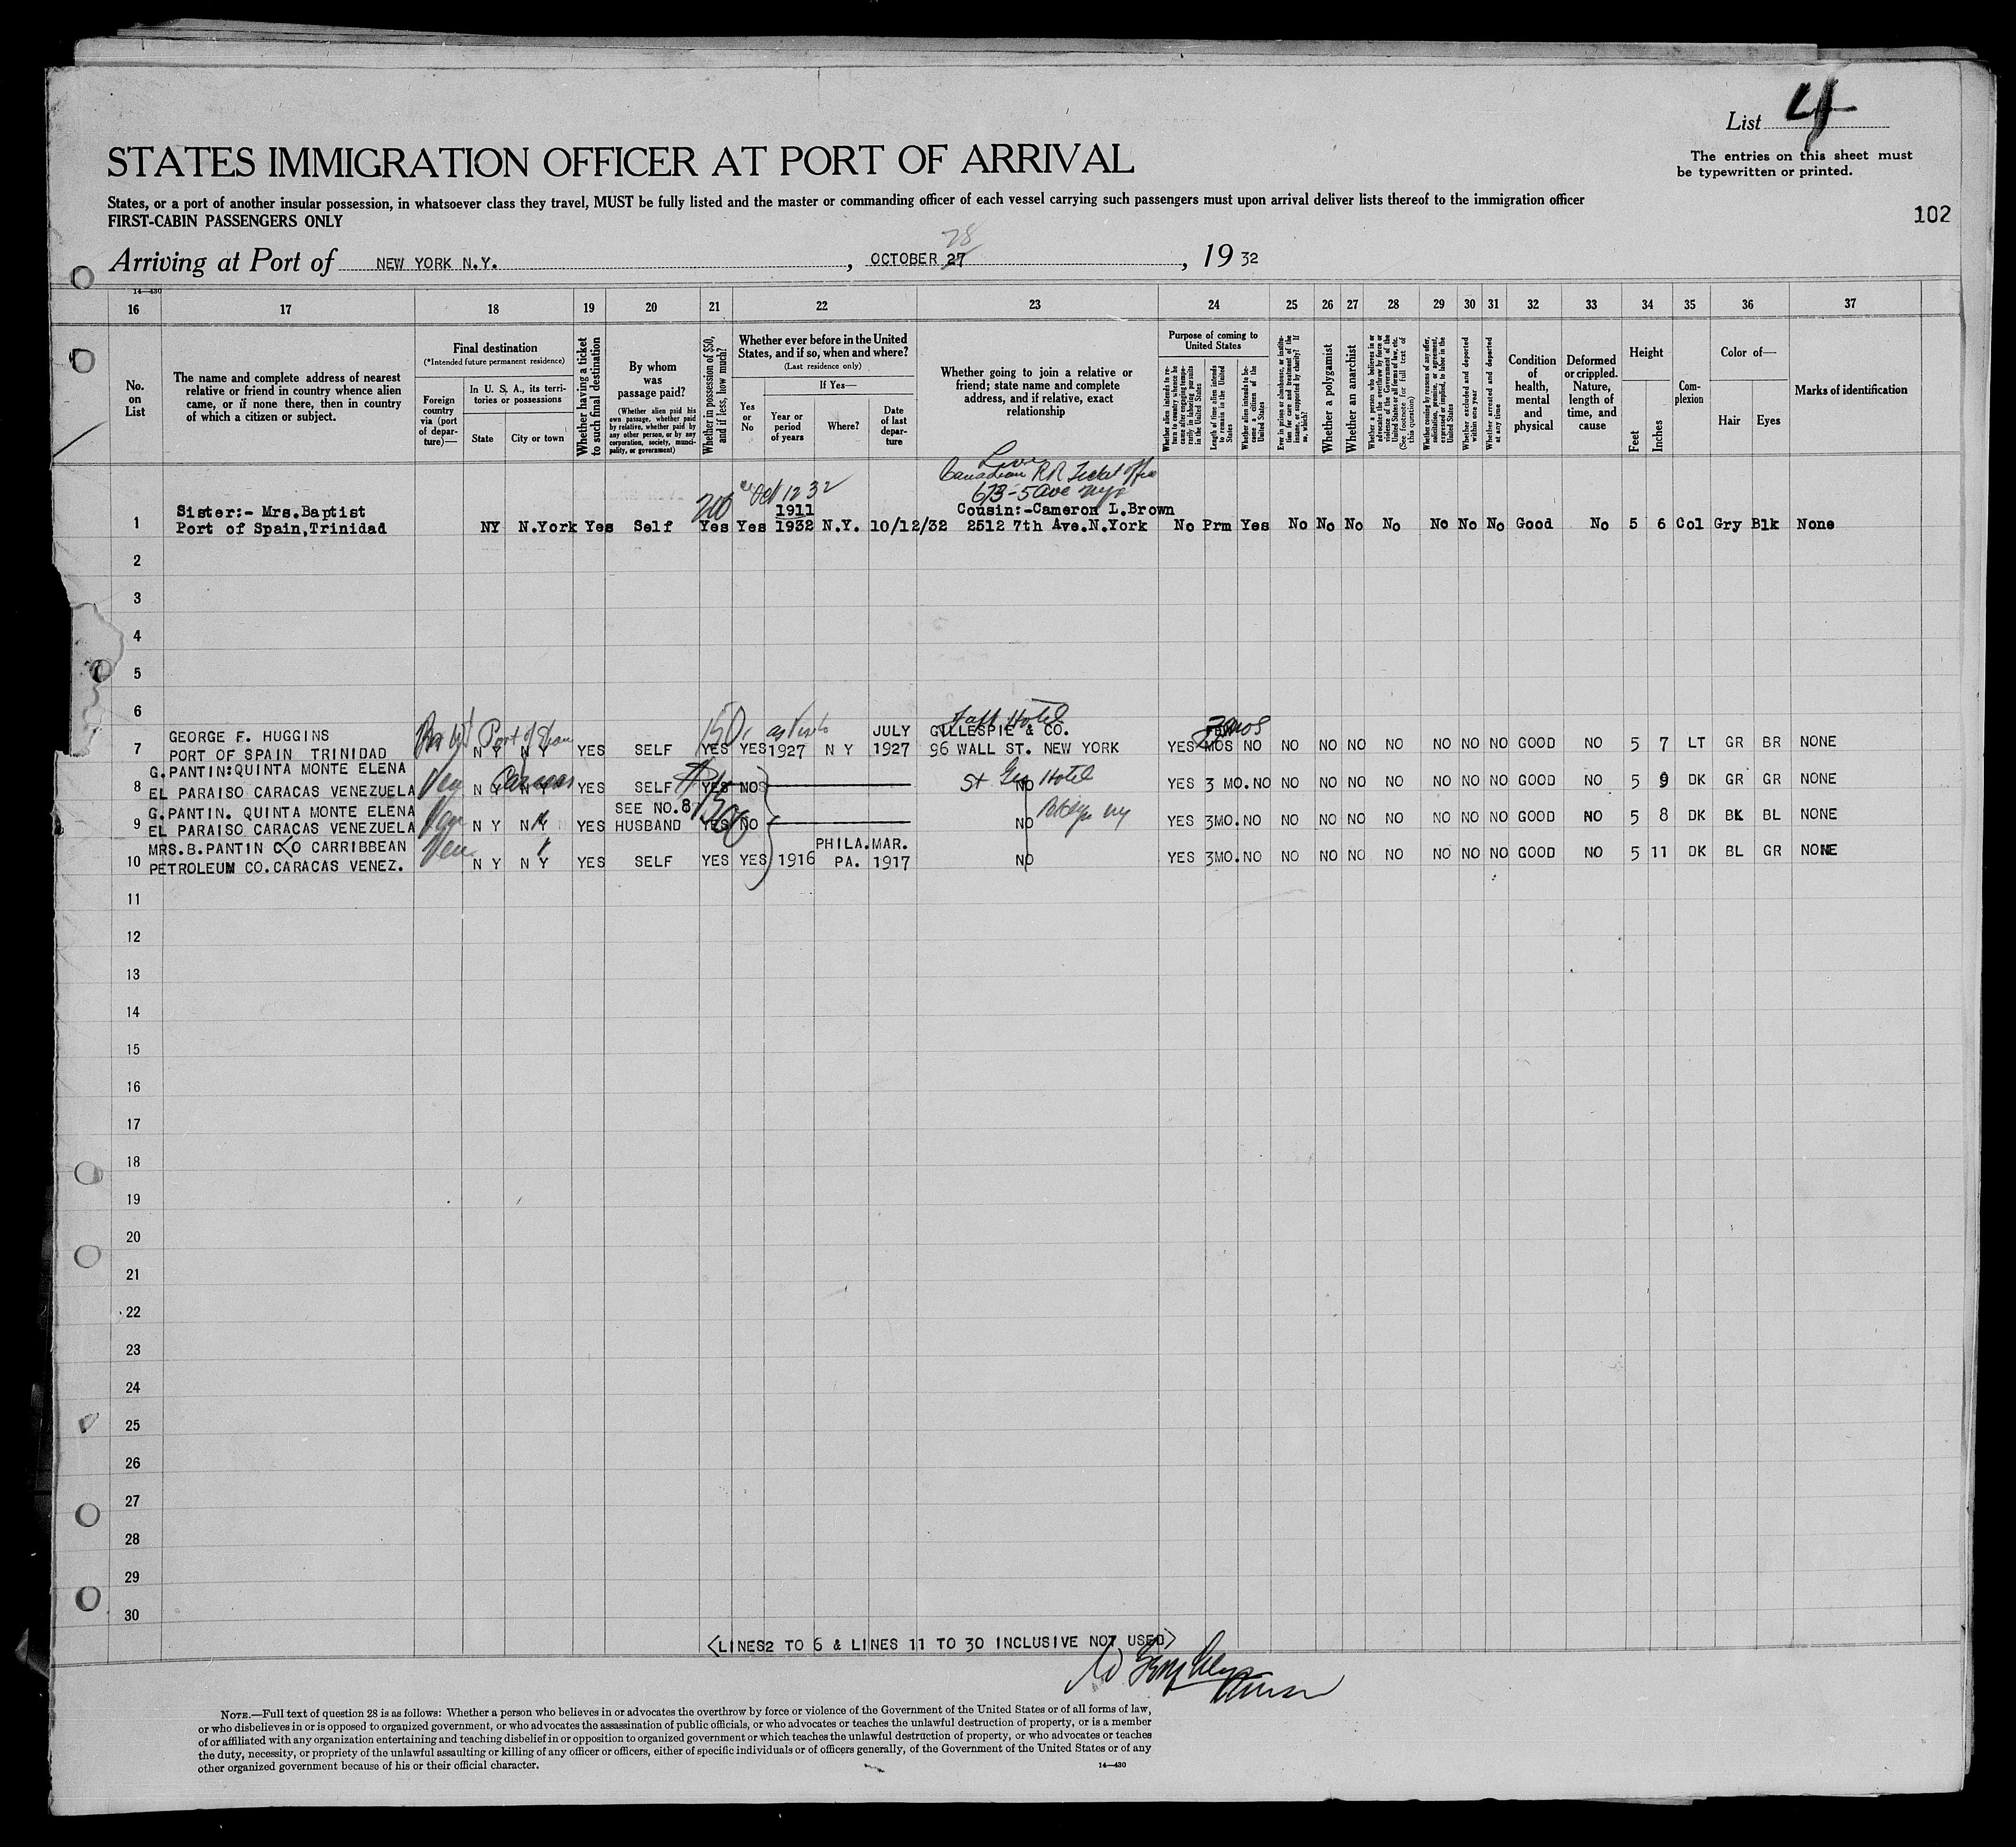 List 4
The entries on this sheet must
be typewritten or printed.
STATES IMMIGRATION OFFICER AT PORT OF ARRIVAL
States, or a port of another insular possession, in whatsoever class they travel, MUST be fully listed and the master or commanding officer of each vessel carrying such passengers must upon arrival deliver lists thereof to the immigration officer
FIRST-CABIN PASSENGERS ONLY
102
28
Arriving at Port of NEW YORK N.Y. , OCTOBER 27 , 19 32
14—430
16 17 18 19 20 21 22 23 24 25 26 27 28 29 30 31 32 33 34 35 36 37
No. on List
The name and complete address of nearest relative or friend in country whence alien came, or if none there, then in country of which a citizen or subject.
Final destination
(*Intended future permanent residence)
Foreign country via (port of departure)—
In U. S. A., its territories or possessions
State
City or town
Whether having a ticket to such final destination
By whom was passage paid?
(Whether alien paid his own passage, whether paid by relative, whether paid by any other person, or by any corporation, society, municipality, or government)
Whether in possession of $50, and if less, how much?
Whether ever before in the United States, and if so, when and where?
(Last residence only)
Yes or No
If Yes—
Year or period of years
Where?
Date of last departure
Whether going to join a relative or friend; state name and complete address, and if relative, exact relationship
Purpose of coming to United States
Whether alien intends to return to country whence he came after engaging temporarily in laboring pursuits in the United States
Length of time alien intends to remain in the United States
Whether alien intends to become a citizen of the United States
Ever in prison or almshouse, or institution for care and treatment of the insane, or supported by charity? If so, which?
Whether a polygamist
Whether an anarchist
Whether a person who believes in or advocates the overthrow by force or violence of the Government of the United States or all forms of law, etc. (See footnote for full text of this question)
Whether coming by reasons of any offer, solicitation, promise, or agreement, expressed or implied, to labor in the United States
Whether excluded and deported within one year
Whether arrested and deported at any time
Condition of health, mental and physical
Deformed or crippled. Nature, length of time, and cause
Height
Feet
Inches
Complexion
Color of—
Hair
Eyes
Marks of identification
Canadian RR Ticket office
Oct 12 32
673-5 ave nyc
Sister:- Mrs.Baptist 200 1911 Cousin:-Cameron L.Brown
1 Port of Spain,Trinidad NY N.York Yes Self Yes Yes 1932 N.Y. 10/12/32 2512 7th Ave.N.York No Prm Yes No No No No No No No Good No 5 6 Col Gry Blk None
2
3
4
5
6
Taft Hotel
GEORGE F. HUGGINS Port of Spain 150 JULY GILLESPIE & CO.
7 PORT OF SPAIN TRINIDAD N Y N Y YES SELF YES YES 1927 N Y 1927 96 WALL ST. NEW YORK YES MOS NO NO NO NO NO NO NO NO GOOD NO 5 7 LT GR BR NONE
G.PANTIN:QUINTA MONTE ELENA
8 EL PARAISO CARACAS VENEZUELA Ven Caracas N Y N Y YES SELF YES NO St Geo Hotel NO YES 3 MO. NO NO NO NO NO NO NO NO GOOD NO 5 9 DK GR GR NONE
G.PANTIN. QUINTA MONTE ELENA SEE NO.8 1500 Bklyn NY
9 EL PARAISO CARACAS VENEZUELA Ven N Y N Y YES HUSBAND YES NO NO YES 3MO. NO NO NO NO NO NO NO NO GOOD NO 5 8 DK BK BL NONE
MRS.B.PANTIN C/O CARRIBBEAN Ven PHILA. MAR.
10 PETROLEUM CO.CARACAS VENEZ. N Y N Y YES SELF YES YES 1916 PA. 1917 NO YES 3MO. NO NO NO NO NO NO NO NO GOOD NO 5 11 DK BL GR NONE
11
12
13
14
15
16
17
18
19
20
21
22
23
24
25
26
27
28
29
30
<LINES2 TO 6 & LINES 11 TO 30 INCLUSIVE NOT USED>
NOTE.—Full text of question 28 is as follows: Whether a person who believes in or advocates the overthrow by force or violence of the Government of the United States or of all forms of law,
or who disbelieves in or is opposed to organized government, or who advocates the assassination of public officials, or who advocates or teaches the unlawful destruction of property, or is a member
of or affiliated with any organization entertaining and teaching disbelief in or opposition to organized government or which teaches the unlawful destruction of property, or who advocates or teaches
the duty, necessity, or propriety of the unlawful assaulting or killing of any officer or officers, either of specific individuals or of officers generally, of the Government of the United States or of any
other organized government because of his or their official character.
14—430